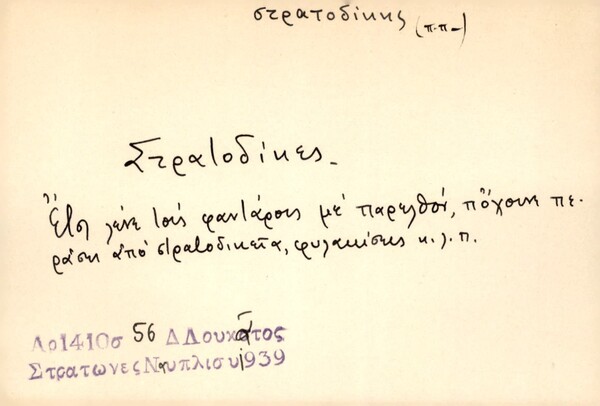 στρατοδίκης (π.π.-)
Στρατοδίκες.
Ἔτσι λένε τοὺς φαντάρους μὲ παρελθόν, πὄχουνε πε-
ράσει ἀπὸ στρατοδικεῖα, φυλακίσεις κ.λ.π.
Αρ1410σ 56 Δ Δουκᾶτος
ΣτρατωνεςΝαυπλιου 1939